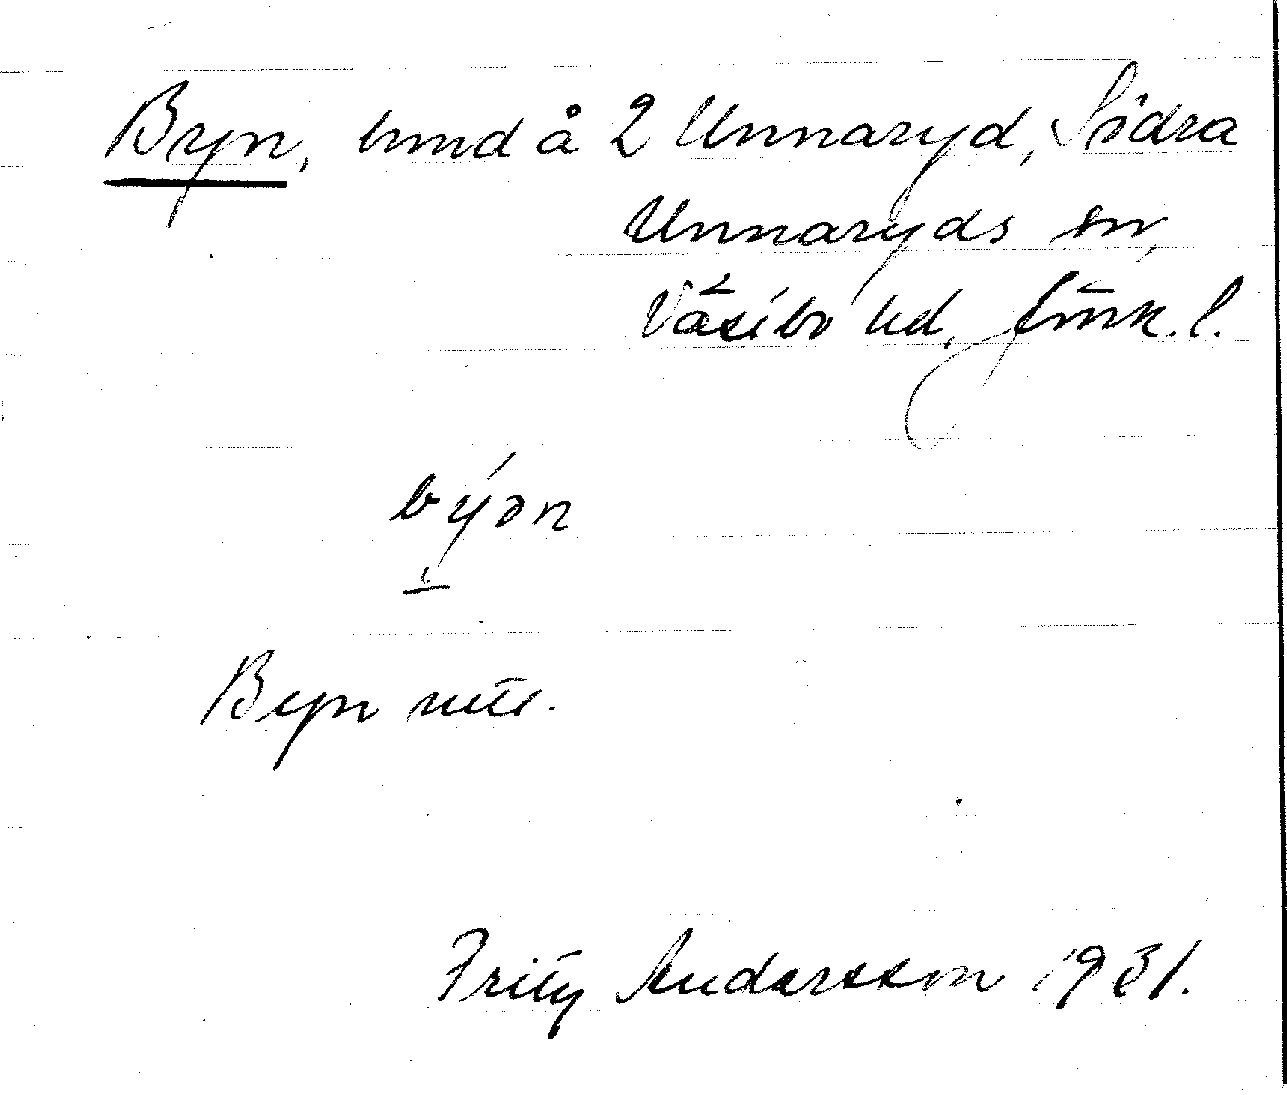 Byn, hmd å 2 Unnaryd, Södra
Unnaryds sn,
Västbo hd, Jönk. l.
býən
Byn uttr.
Fritz Andersson 1931.